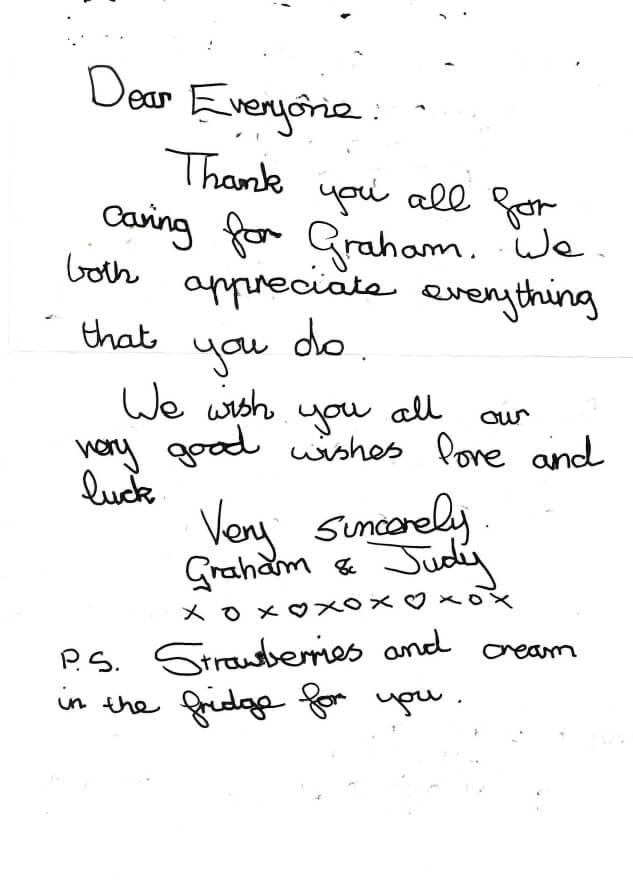 Dear Everyone:
Thank you all for
caring for Graham. We
both appreciate everything
that you do.
We wish you all our
very good wishes love and
luck
Very sincerely.
Graham & Judy
x o x ♡ x o x ♡ x o x
P.S. Strawberries and cream
in the fridge for you.